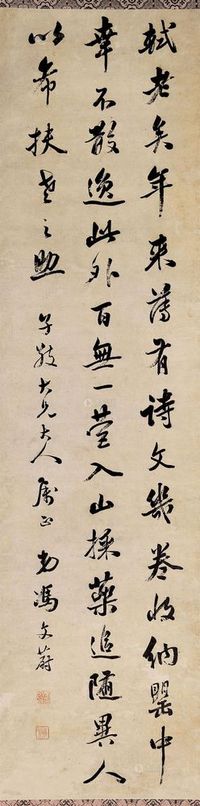 軾老矣年來薄有詩文幾卷收納罌中
幸不散逸此外百無一營入山採藥追隨異人
以希扶之助 子大兄大人屬正 弟馮文蔚